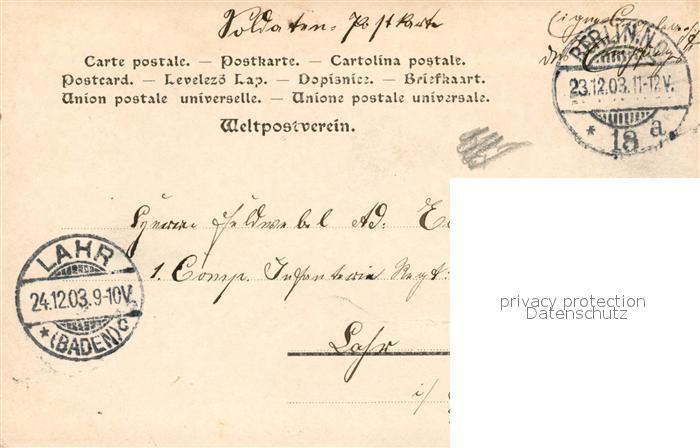 Soldaten-Postkarte
Eigene
des
Carte postale. — Postkarte. — Cartolina postale.
Postcard. — Levelező Lap. — Dopisnice. — Briefkaart.
Union postale universelle. — Unione postale universale.
Weltpostverein.
BERLIN.N.
23.12.03.11-12V.
* 18 a
Herrn Feldwebel Ad:
1. Comp. Infanterie Regt:
LAHR
24.12.03.9-10V.
*(BADEN)c
Lahr
i/
privacy protection
Datenschutz